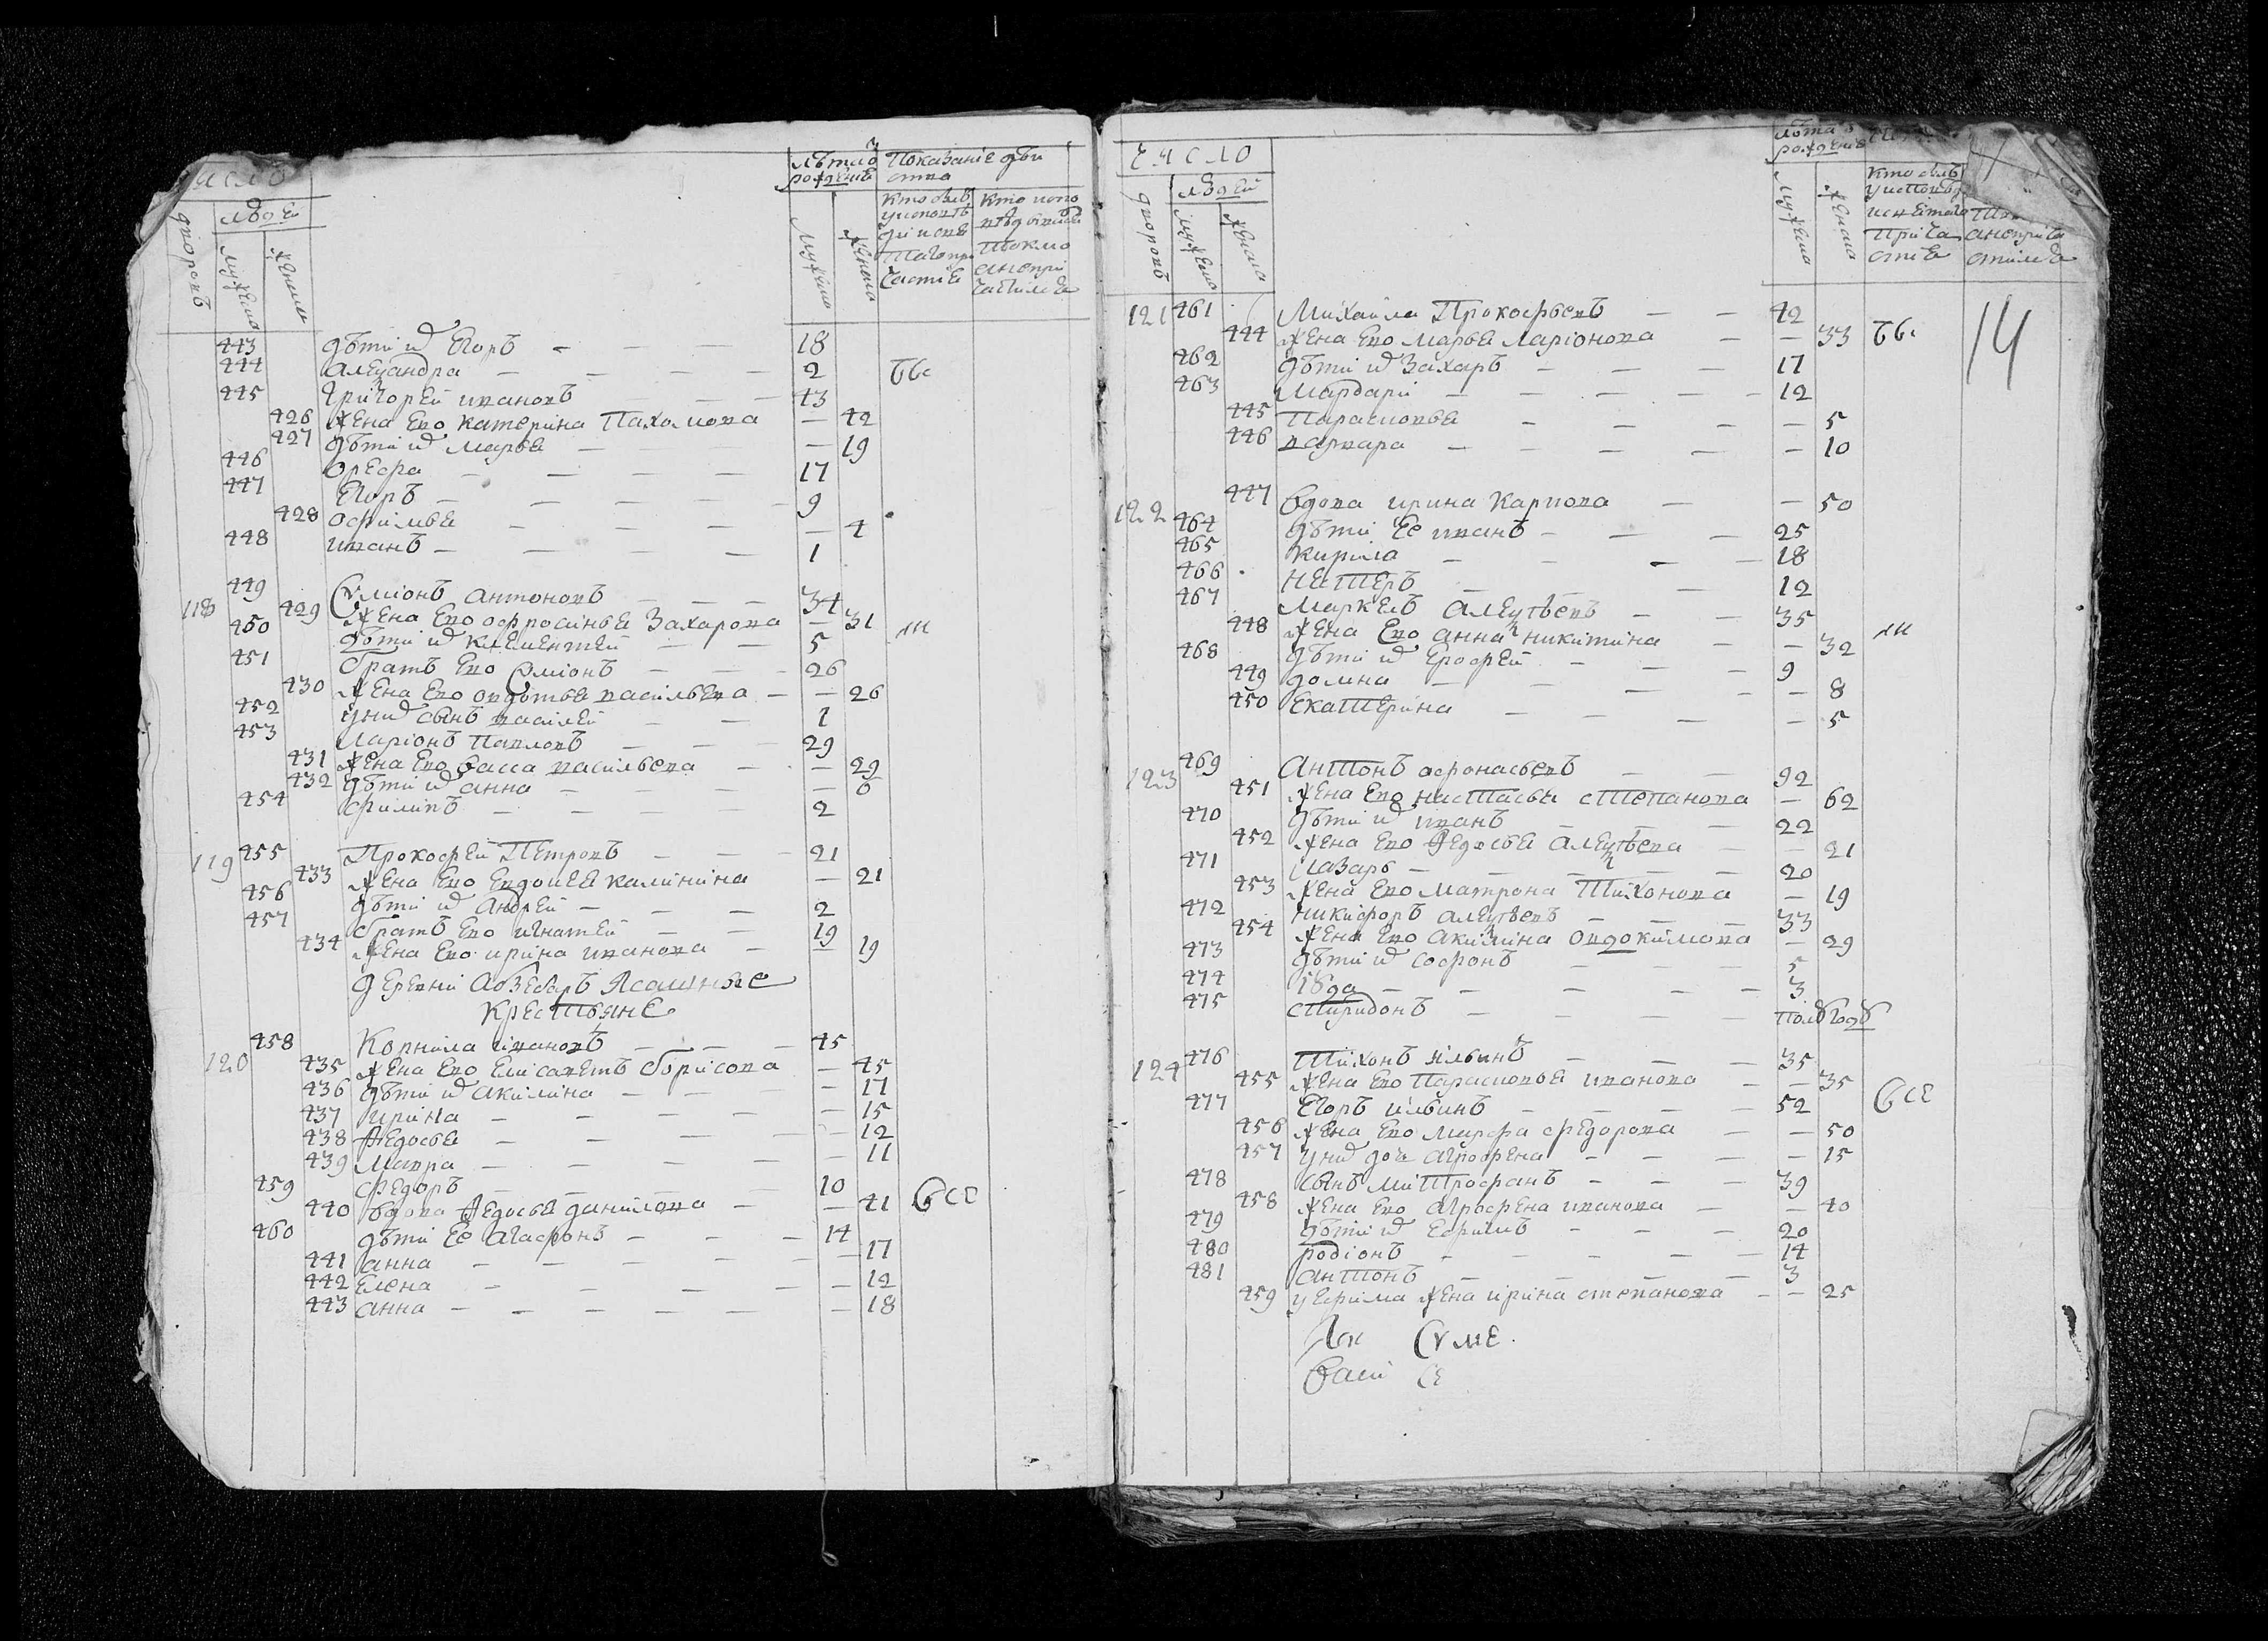 число
людей
дворовъ
мужеска
женска
лѣта от рождения
мужеска
женска
Показание действа
кто былъ у исповеди и святаго причастия
кто исповедывался токмо а не причастился
443 дѣти их Егоръ — — — 18
444 Александра — — — — 2
445 Григорей ивановъ — — 43
426 жена ево катерина Пахомова — 42
427 дѣти их марья — — — 19
446 орефа — — — — 17
447 Егоръ — — — — 9
428 офимья — — — — 4
448 иванъ — — — — 1
118 449 Симионъ антоновъ — — — 34
429 жена ево офросинья Захарова — 31
450 дѣти их климентей — — 5
451 братъ ево Симионъ — — 26
430 жена ево овдотья васильева — — 26
452 у них сынъ василей — — 1
453 Ларионъ павловъ — — — 29
431 жена ево васса васильева — — 29
432 дѣти их анна — — — — 6
454 филипъ — — — — 2
119 455 Прокофей Петровъ — — — 21
433 жена ево Евдокея калинина — 21
456 дѣти их Андрей — — — 2
457 братъ ево игнатей — — 19
434 жена ево ирина иванова — — 19
деревни ясашные
крестьяне
120 458 Корнила ивановъ — — — 45
435 жена ево Елисаветъ борисова — 45
436 дѣти их акилина — — — 17
437 ирина — — — — — 15
438 Федосья — — — — — 12
439 мавра — — — — — 11
459 федоръ — — — — 10
440 вдова Федосья данилова — — 41 все
460 дѣти ее агафонъ — — — 14
441 анна — — — — — 17
442 Елена — — — — — 12
443 анна — — — — — 18
число
людей
дворовъ
мужеска
женска
лѣта от рождения
мужеска
женска
14
121 461 Михаила Прокофьевъ — — 42
444 жена ево марья ларионова — — 33
462 дѣти их Захаръ — — — 17
463 Мардари — — — — — 12
445 Парасковья — — — — 5
446 варвара — — — — — 10
122 447 вдова ирина карпова — — 50
464 дѣти ее иванъ — — — 25
465 кирила — — — — 18
466 нестеръ — — — 12
467 маркелъ алексѣевъ — — 35
448 жена ево анна никитина — — 32
468 дѣти их Ерофей — — — 9
449 домна — — — — — 8
450 екатерина — — — — 5
123 469 Антонъ офонасьевъ — — 92
451 жена ево настасья степанова — 62
470 дѣти их иванъ — — — 22
452 жена ево Федосья алексѣева — — 21
471 лазарь — — — — — 20
453 жена ево матрона тихонова — 19
472 никифоръ алексѣевъ — — — 33
454 жена ево акилина овдокимова — 29
473 дѣти их софронъ — — — 5
474 — — — — — 3
475 спиридонъ — — — — полугоду
124 476 тихонъ ильинъ — — — 35
455 жена ево Парасковья иванова — — 35
477 Егоръ ильинъ — — — — 52 все
456 жена ево марфа федорова — — 50
457 у них дочь агрофена — — — — 15
478 сынъ митрофанъ — — — 39
458 жена ево агрофена иванова — — 40
479 дѣти их Ефимъ — — — 20
480 родионъ — — — — — 14
481 антонъ — — — — 3
459 у Ефима жена ирина степанова — — 25